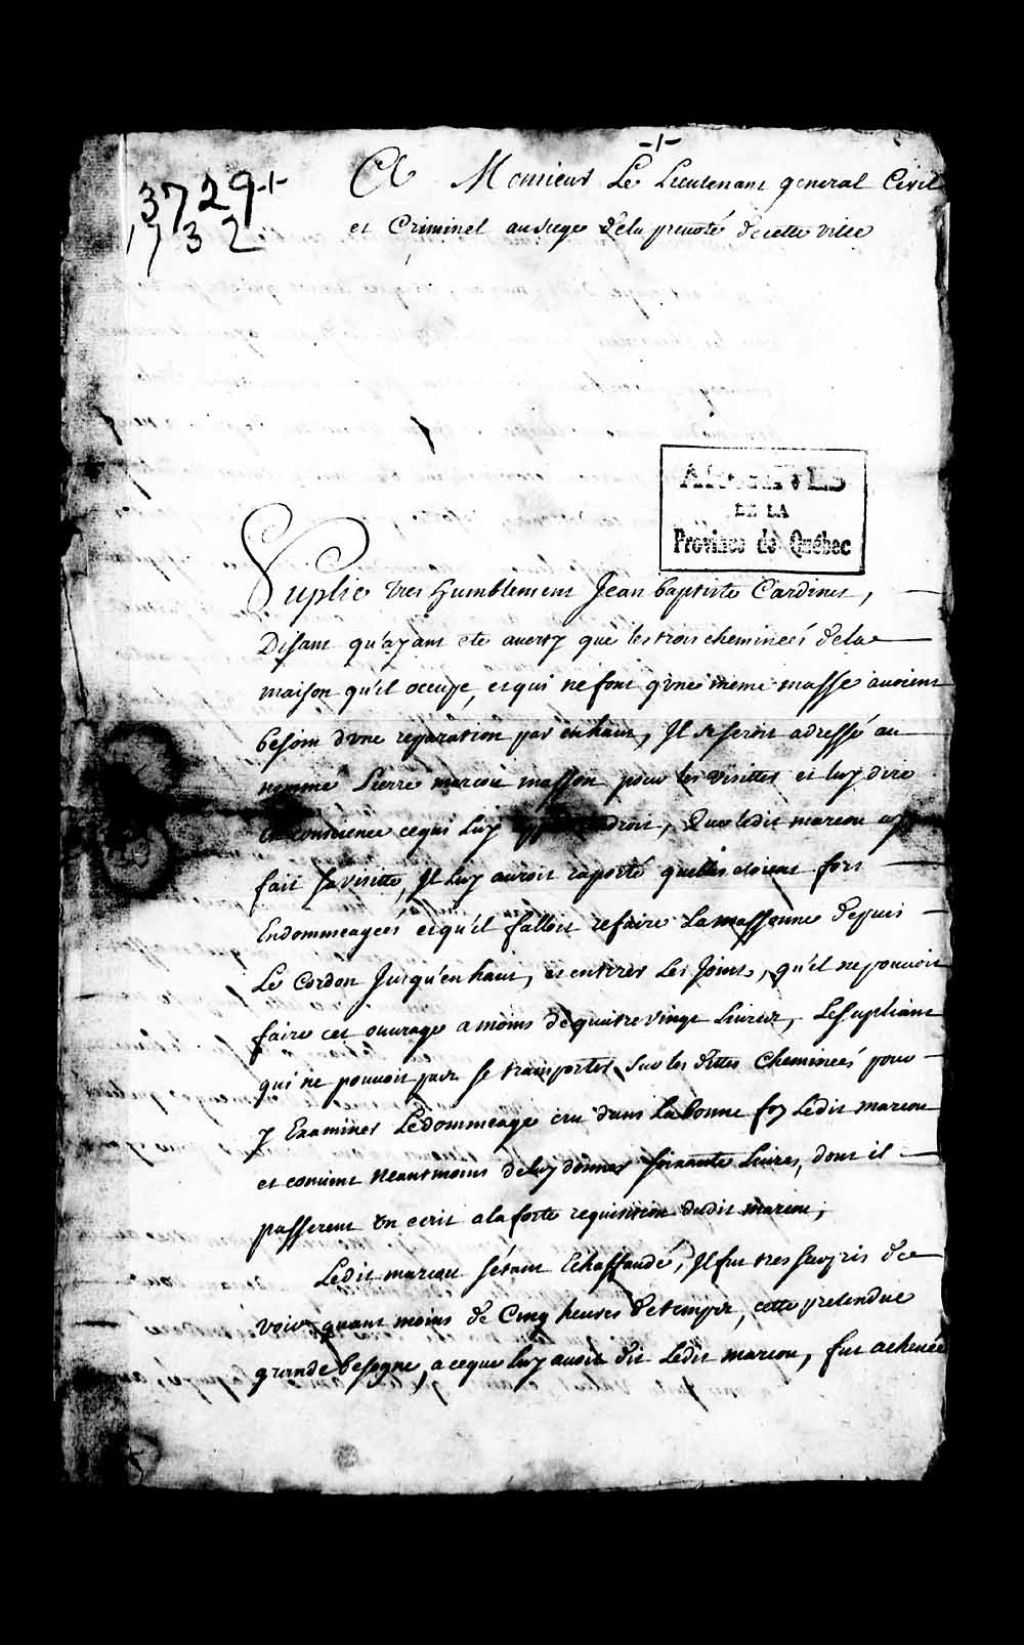 3729
1732
A Monsieur Le Lieutenant general Civil
et Criminel au siege de la prevoté de cette ville
ARCHIVES
DE LA
Province de Québec
Suplie tres humblement Jean baptiste Cardinet,
Disant qu'ayant ete averty que les trois cheminées de la
maison qu'il occupe, et qui ne font q'une meme masse avoient
besoin d'une reparation par en haut, Il se seroit adressé au
nommé Pierre marcou masson pour les visitter et luy dire
en conscience ce qui luy, Que ledit marcou
fait sa visitte, Il luy auroit raporté quelles etoient fort
Endommeagées et qu'il falloit refaire La massonne depuis
Le Cordon Jusqu'en haut, et entirer Les Joints, qu'il ne pouvoit
faire cet ouvrage a moins de quatre vingt Livres, Le supliant
qui ne pouvoit pas se transporter sur les dittes Cheminées pour
y Examiner Le dommeage cru dans La bonne foy Ledit marcou
et convint neantmoins de luy donner soixante Livres, dont il
passerent un ecrit a la forte requisition dudit marcou,
Ledit marcou s'étant Echaffaudé, Il fut tres surpris de
voir quant moins de Cinq heures de temps, cette pretendue
grande besogne, a ceque luy avoit dit Ledit marcou, fut achevée